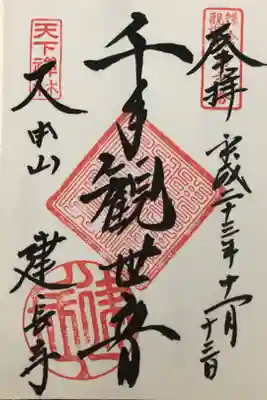 奉拝
平成二十三年十一月
千手観世音
天下禅林
巨福山
建長寺